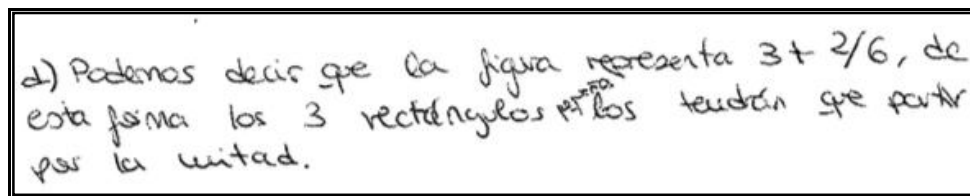 d) Podemos decir que la figura representa 3 + 2/6, de
esta forma los 3 rectángulos los tendrán que partir
por la mitad.